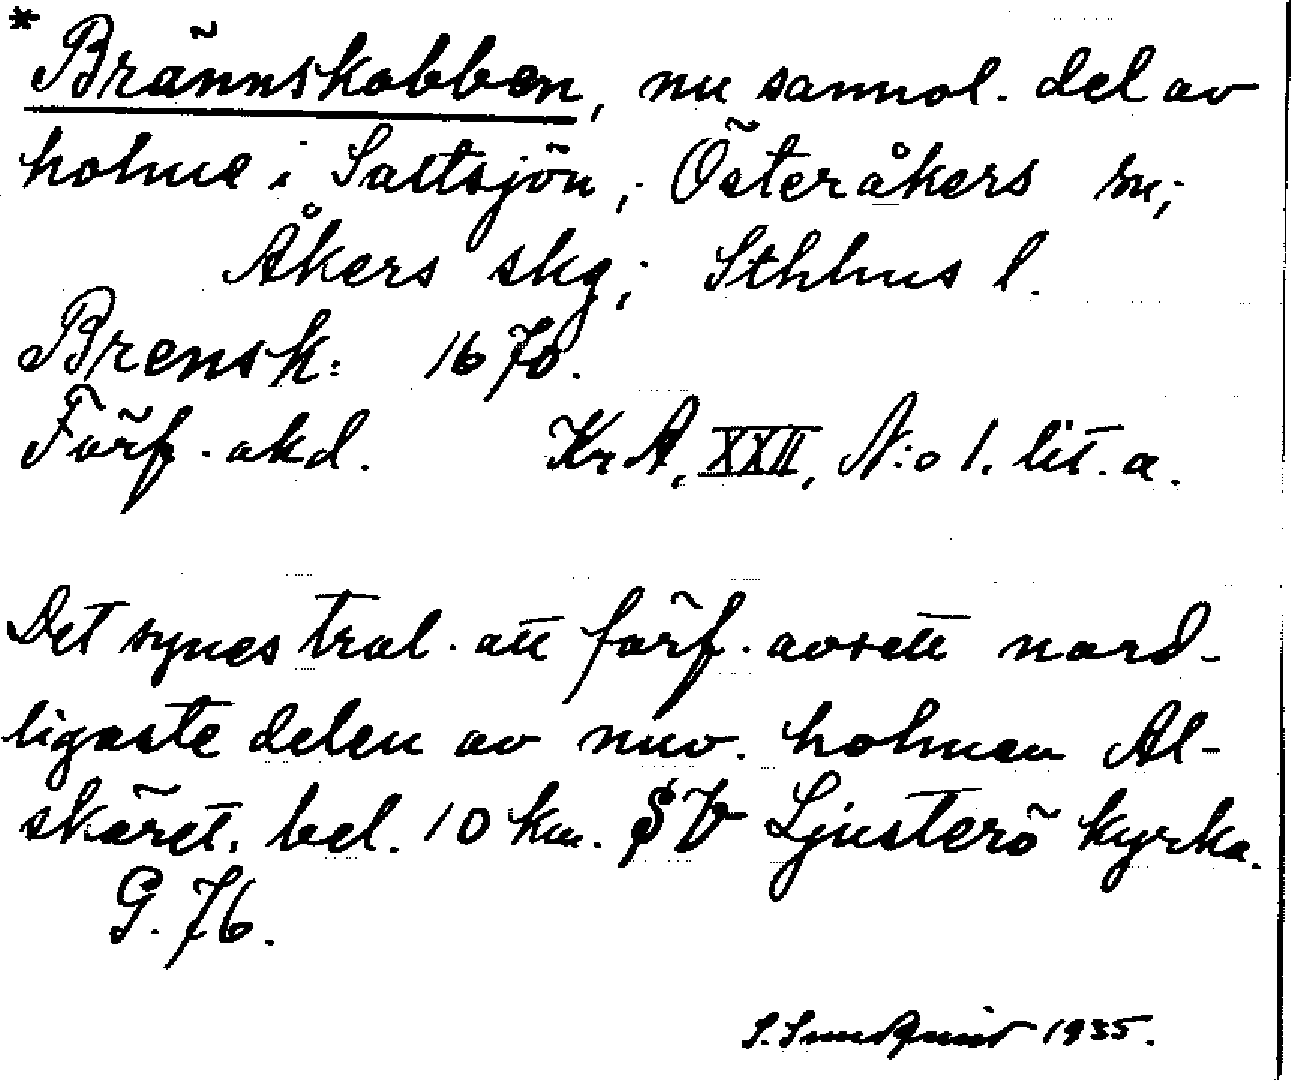 * Brännskobben, nu sannol. del av
holme i Saltsjön; Österåkers sn;
Åkers skg; Sthlms l.
Brensk: 1670.
Förf. okd. KrA, XXII, N:o 1. lit. a.
Det synes trol. att förf. avsett nord-
ligaste delen av nuv. holmen Al-
skäret, bel. 10 km. SV Ljusterö kyrka.
G. 76.
S. Sundquist 1935.